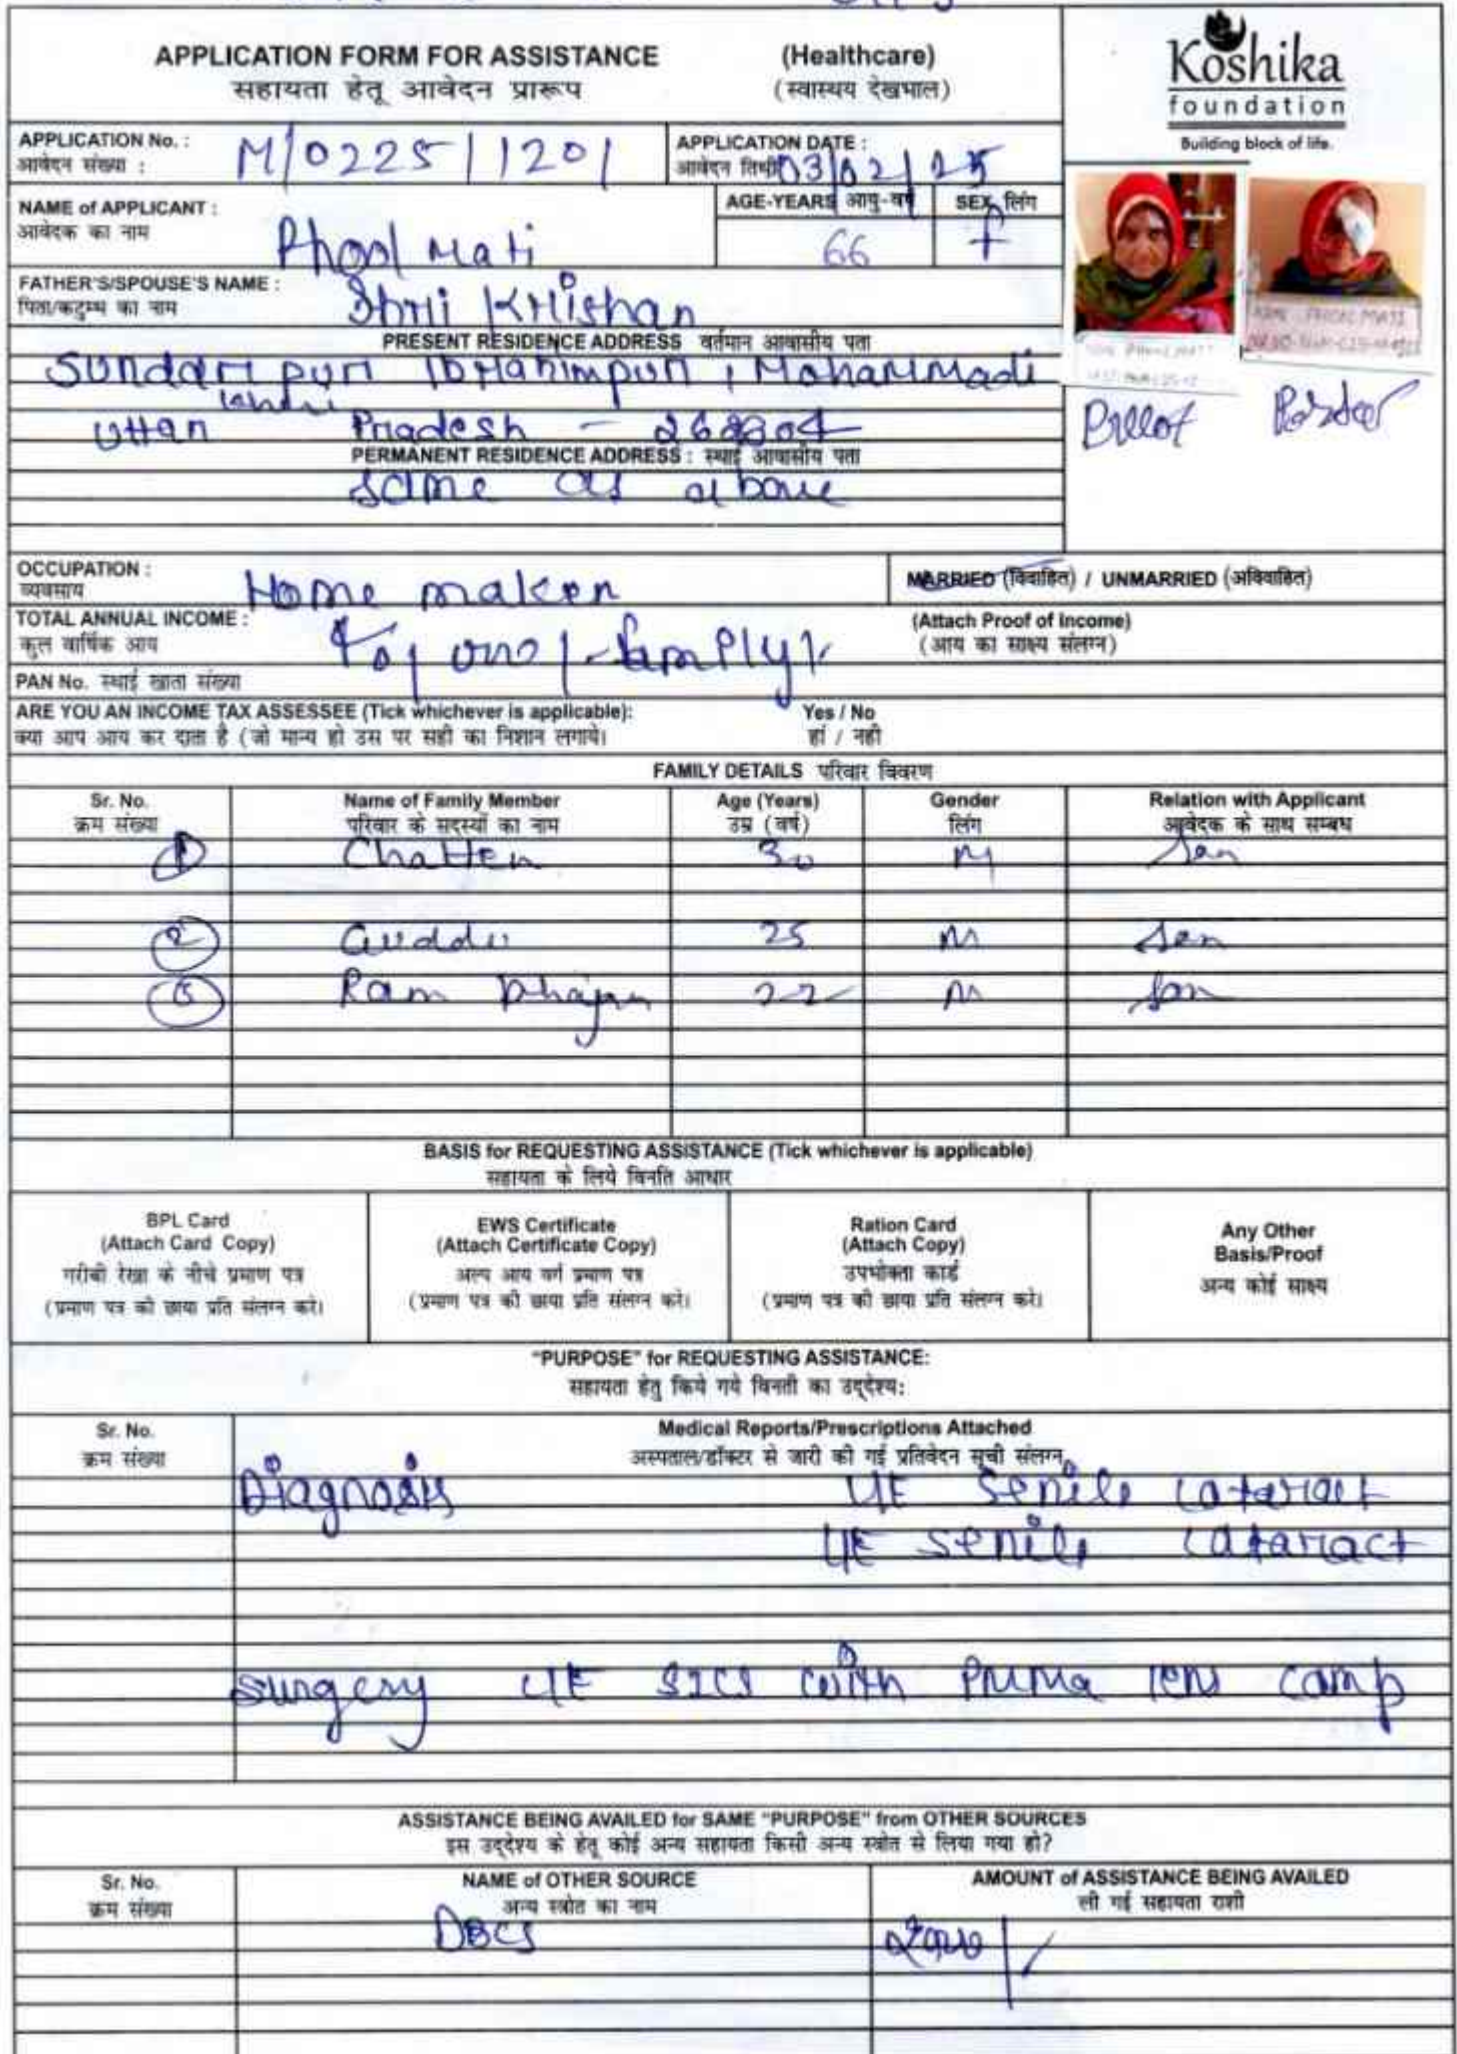 APPLICATION FORM FOR ASSISTANCE (Healthcare)
सहायता हेतू आवेदन प्रारूप (स्वास्थय देखभाल)
Koshika
foundation
Building block of life.
APPLICATION No. : M/0225/1201
आवेदन संख्या :
APPLICATION DATE :
आवेदन तिथी 03/02/25
NAME of APPLICANT :
आवेदक का नाम
Phool Mati
AGE-YEARS आयु-वर्ष 66
SEX लिंग f
FATHER'S/SPOUSE'S NAME :
पिता/कटुम्ब का नाम
Shri Krishan
PRESENT RESIDENCE ADDRESS वर्तमान आवासीय पता
Sundarpuri Ibrahimpuri, Mohammadi
Uttar Pradesh -
PERMANENT RESIDENCE ADDRESS : स्थाई आवासीय पता
same as above
OCCUPATION :
व्यवसाय
Home maker
MARRIED (विवाहित) / UNMARRIED (अविवाहित)
TOTAL ANNUAL INCOME :
कुल वार्षिक आय
(Attach Proof of Income)
(आय का साक्ष्य संलग्न)
PAN No. स्थाई खाता संख्या
ARE YOU AN INCOME TAX ASSESSEE (Tick whichever is applicable): Yes / No
क्या आप आय कर दाता है (जो मान्य हो उस पर सही का निशान लगाये। हां / नही
FAMILY DETAILS परिवार विवरण
Sr. No. Name of Family Member Age (Years) Gender Relation with Applicant
क्रम संख्या परिवार के सदस्यों का नाम उम्र (वर्ष) लिंग आवेदक के साथ सम्बध
1 Chatter 30 M Son
2 Guddu 25 M Son
3 Ram 22 M Son
BASIS for REQUESTING ASSISTANCE (Tick whichever is applicable)
सहायता के लिये विनति आधार
BPL Card
(Attach Card Copy)
गरीबी रेखा के नीचे प्रमाण पत्र
(प्रमाण पत्र की छाया प्रति संलग्न करे।
EWS Certificate
(Attach Certificate Copy)
अल्प आय वर्ग प्रमाण पत्र
(प्रमाण पत्र की छाया प्रति संलग्न करे।
Ration Card
(Attach Copy)
उपभोक्ता कार्ड
(प्रमाण पत्र की छाया प्रति संलग्न करे।
Any Other
Basis/Proof
अन्य कोई साक्ष्य
"PURPOSE" for REQUESTING ASSISTANCE:
सहायता हेतु किये गये विनती का उद्देश्य:
Sr. No. Medical Reports/Prescriptions Attached
क्रम संख्या अस्पताल/डॉक्टर से जारी की गई प्रतिवेदन सूची संलग्न
Diagnosis LE Senile cataract
LE senile cataract
surgery LE SICS with Prima lens camp
ASSISTANCE BEING AVAILED for SAME "PURPOSE" from OTHER SOURCES
इस उद्देश्य के हेतू कोई अन्य सहायता किसी अन्य स्त्रोत से लिया गया हो?
Sr. No. NAME of OTHER SOURCE AMOUNT of ASSISTANCE BEING AVAILED
क्रम संख्या अन्य स्त्रोत का नाम ली गई सहायता राशी
DBCS